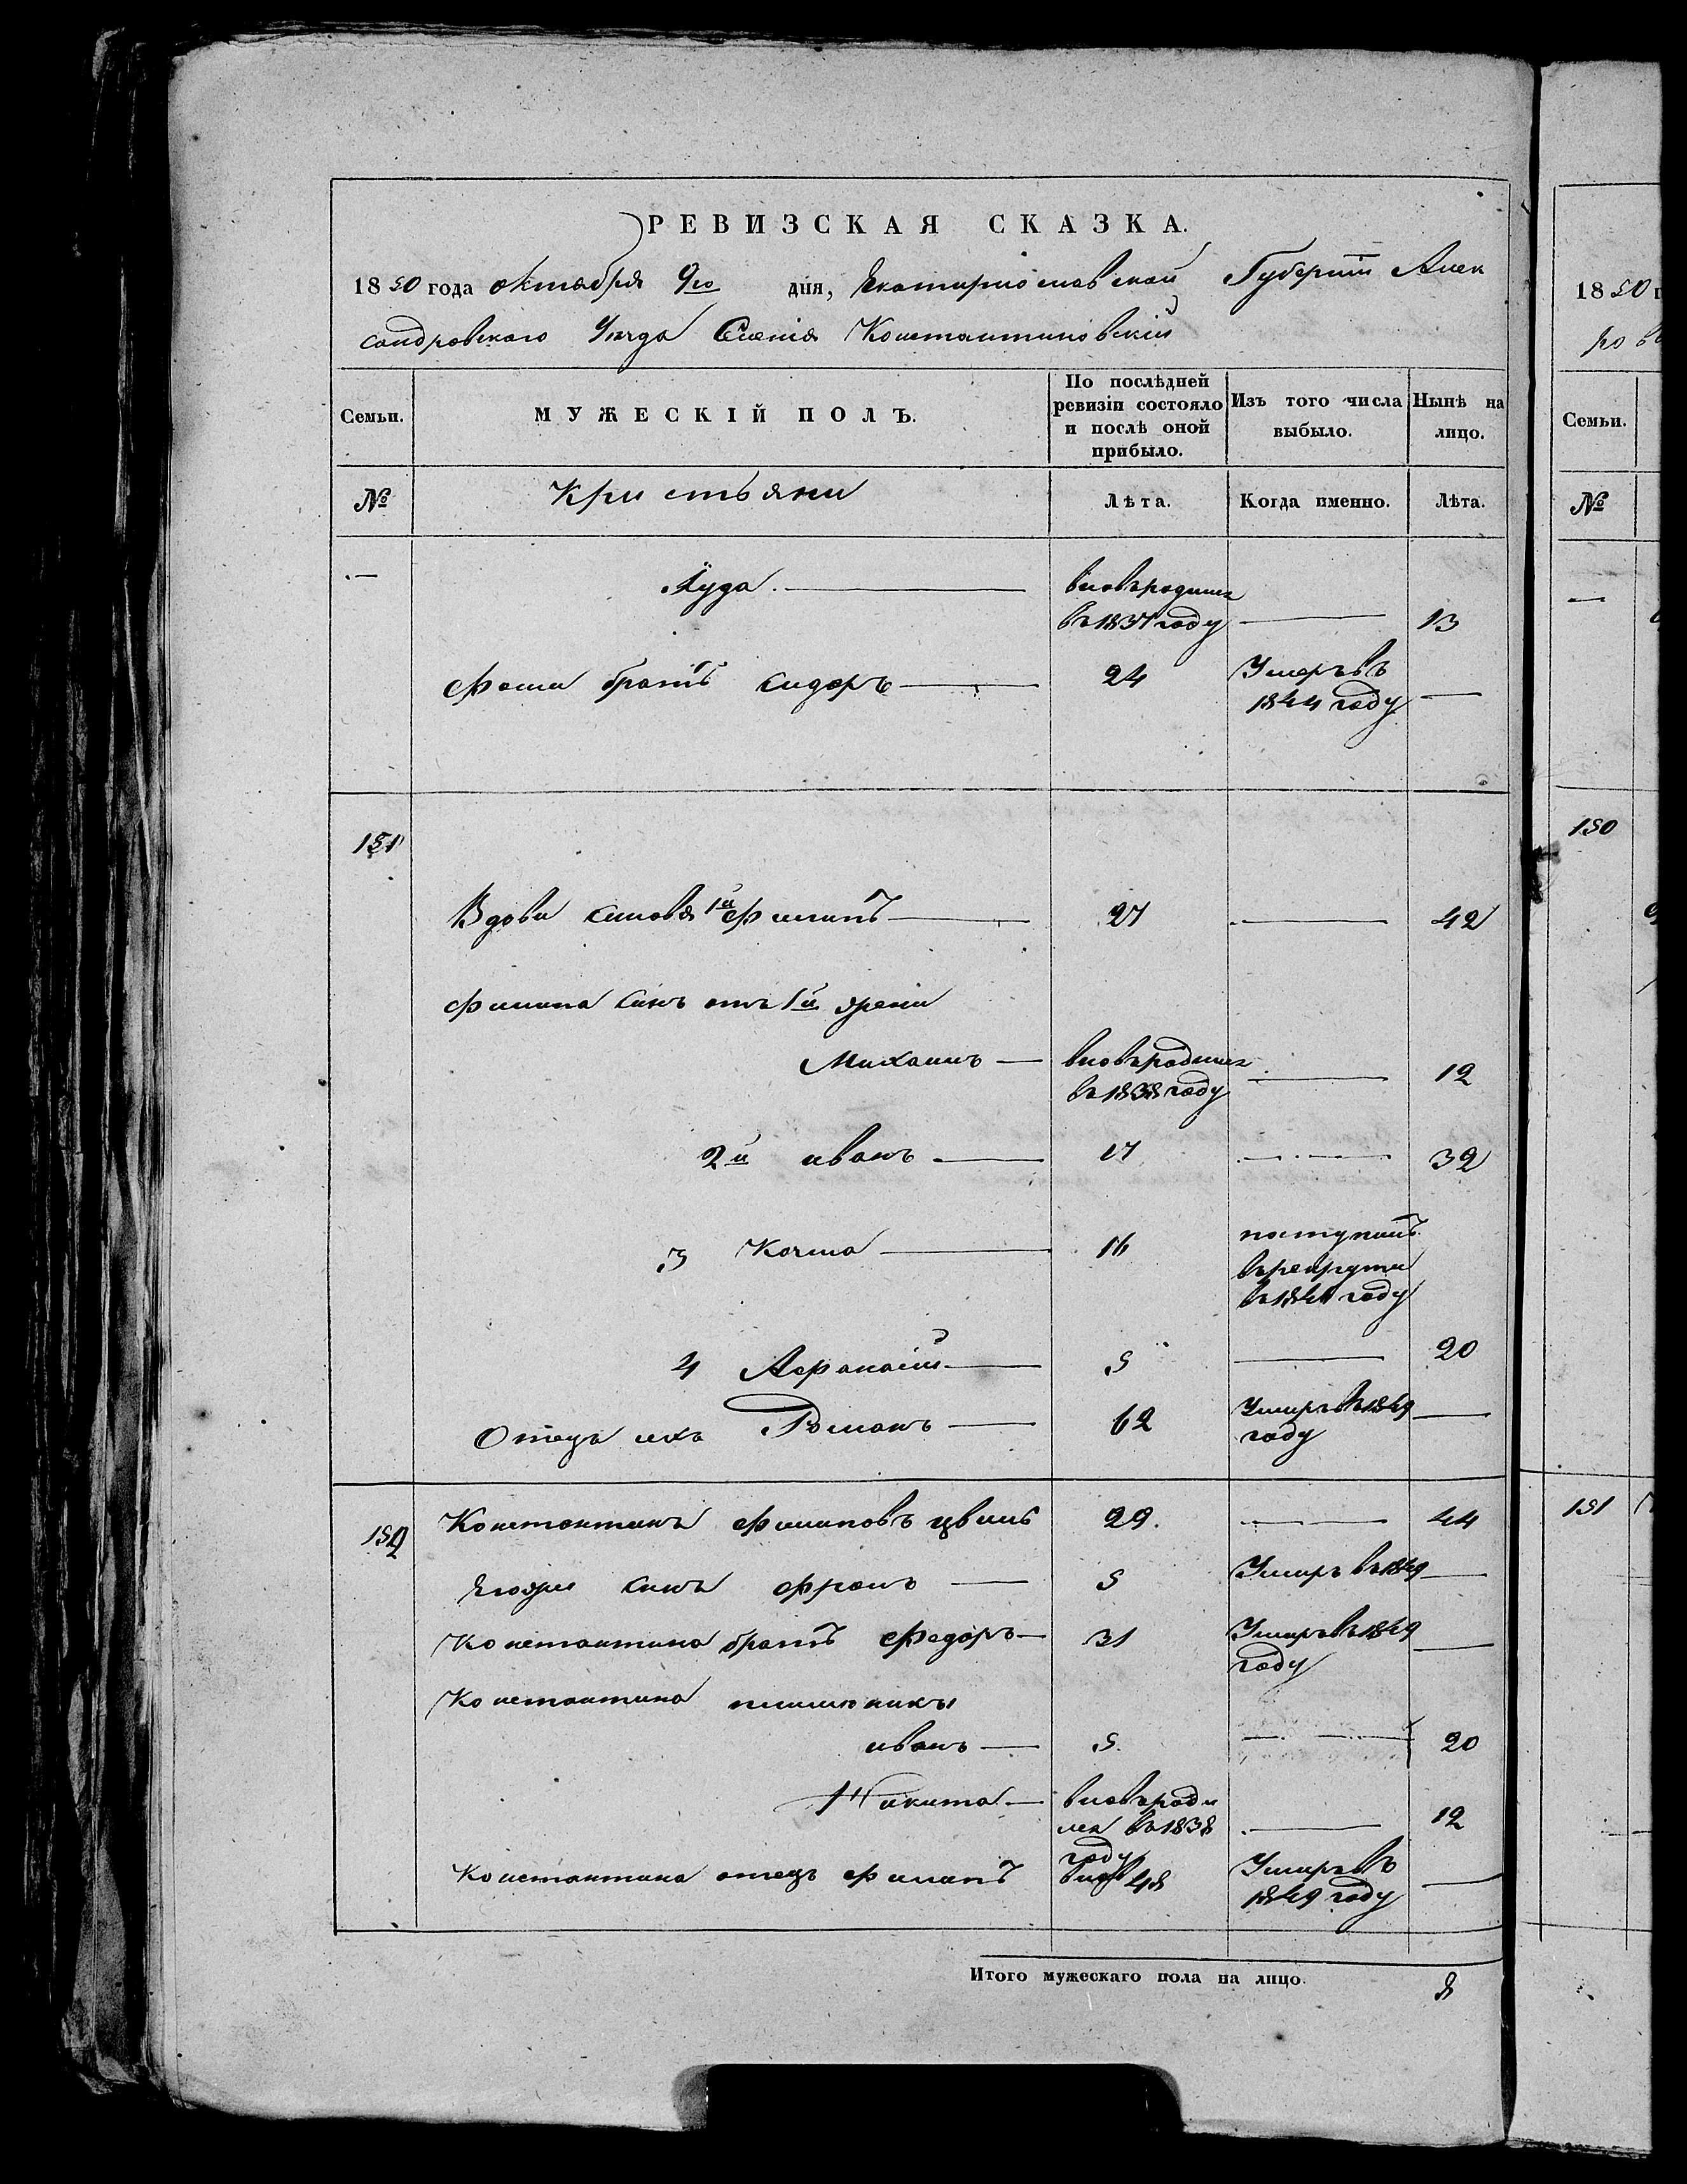 РЕВИЗСКАЯ СКАЗКА.
1850 года октабря 9го дня, Екатиринославской Губернiи Алек
сандровского Уезда Селенiя Константиновский
Семьи.
МУЖЕСКІЙ ПОЛЪ.
По послѣдней ревизіи состояло и послѣ оной прибыло.
Изъ того числа выбыло.
Нынѣ на лицо.
№
Кристьяни
Лѣта.
Когда именно.
Лѣта.
Яуда
вновъродилея
въ1837году
13
Фоми братъ Сидоръ
24
Умеръвъ
1844 году
151
Вдови синовя 1й Филипъ
27
42
Филипа синъ отъ 1й
Михаилъ
вновъродилея
въ1838году
12
2й иванъ
17
32
3 Козма
16
поступилъ
върекрути
году
4 Афонасiй
5
20
Отецъ ихъ Романъ
62
Умиръвъ1849
году
152
Константинъ Филиповъ
29.
44
синъ
5
Умиръ въ1849
Константина братъ Федоръ
31
Умиръвъ1849
году
Константина племюники
иванъ
5.
20
Никита
вновъроди
лея въ1838
году
12
Константина отецъ Филипъ
48
Умиръвъ
1849 году
Итого мужескаго пола на лицо.
8
1850
Семьи.
№
150
151